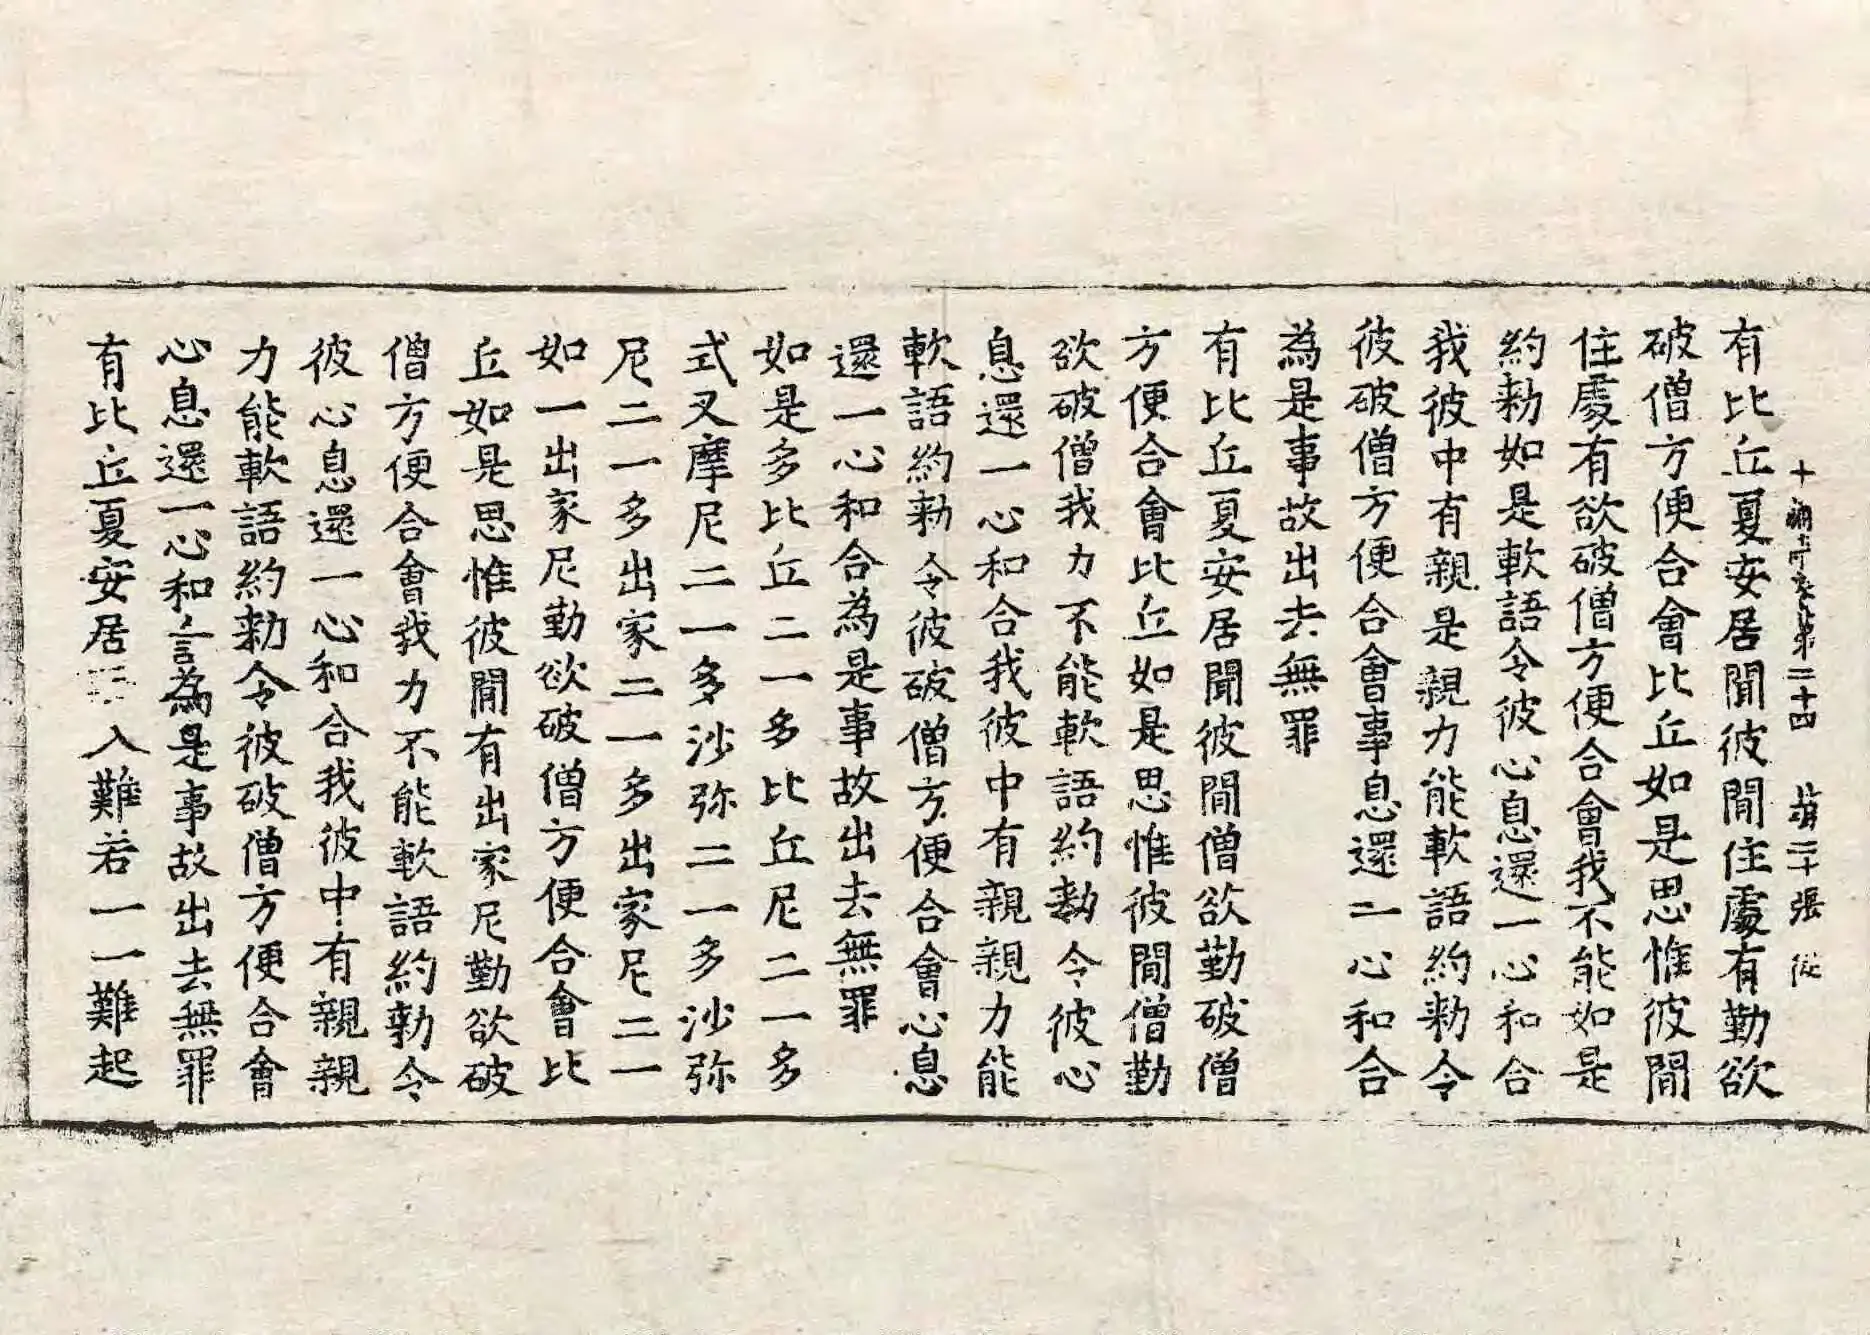 第二十四 第二十張
有比丘夏安居聞彼間住處有勤欲
破僧方便合會比丘如是思惟彼間
住處有欲破僧方便合會我不能如是
約勑如是軟語令彼心息還一心和合
我彼中有親是親力能軟語約勑令
彼破僧方便合會事息還一心和合
為是事故出去無罪
有比丘夏安居聞彼間僧欲勤破僧
方便合會比丘如是思惟彼間僧勤
欲破僧我力不能軟語約勑令彼心
息還一心和合我彼中有親親力能
軟語約勑令彼破僧方便合會心息
還一心和合為是事故出去無罪
如是多比丘二一多比丘尼二一多
式叉摩尼二一多沙弥二一多沙弥
尼二一多出家二一多出家尼二一
如一出家尼勤欲破僧方便合會比
丘如是思惟彼間有出家尼勤欲破
僧方便合會我力不能軟語約勑令
彼心息還一心和合我彼中有親親
力能軟語約勑令彼破僧方便合會
心息還一心和合為是事故出去無罪
有比丘夏安居 入難若一一難起